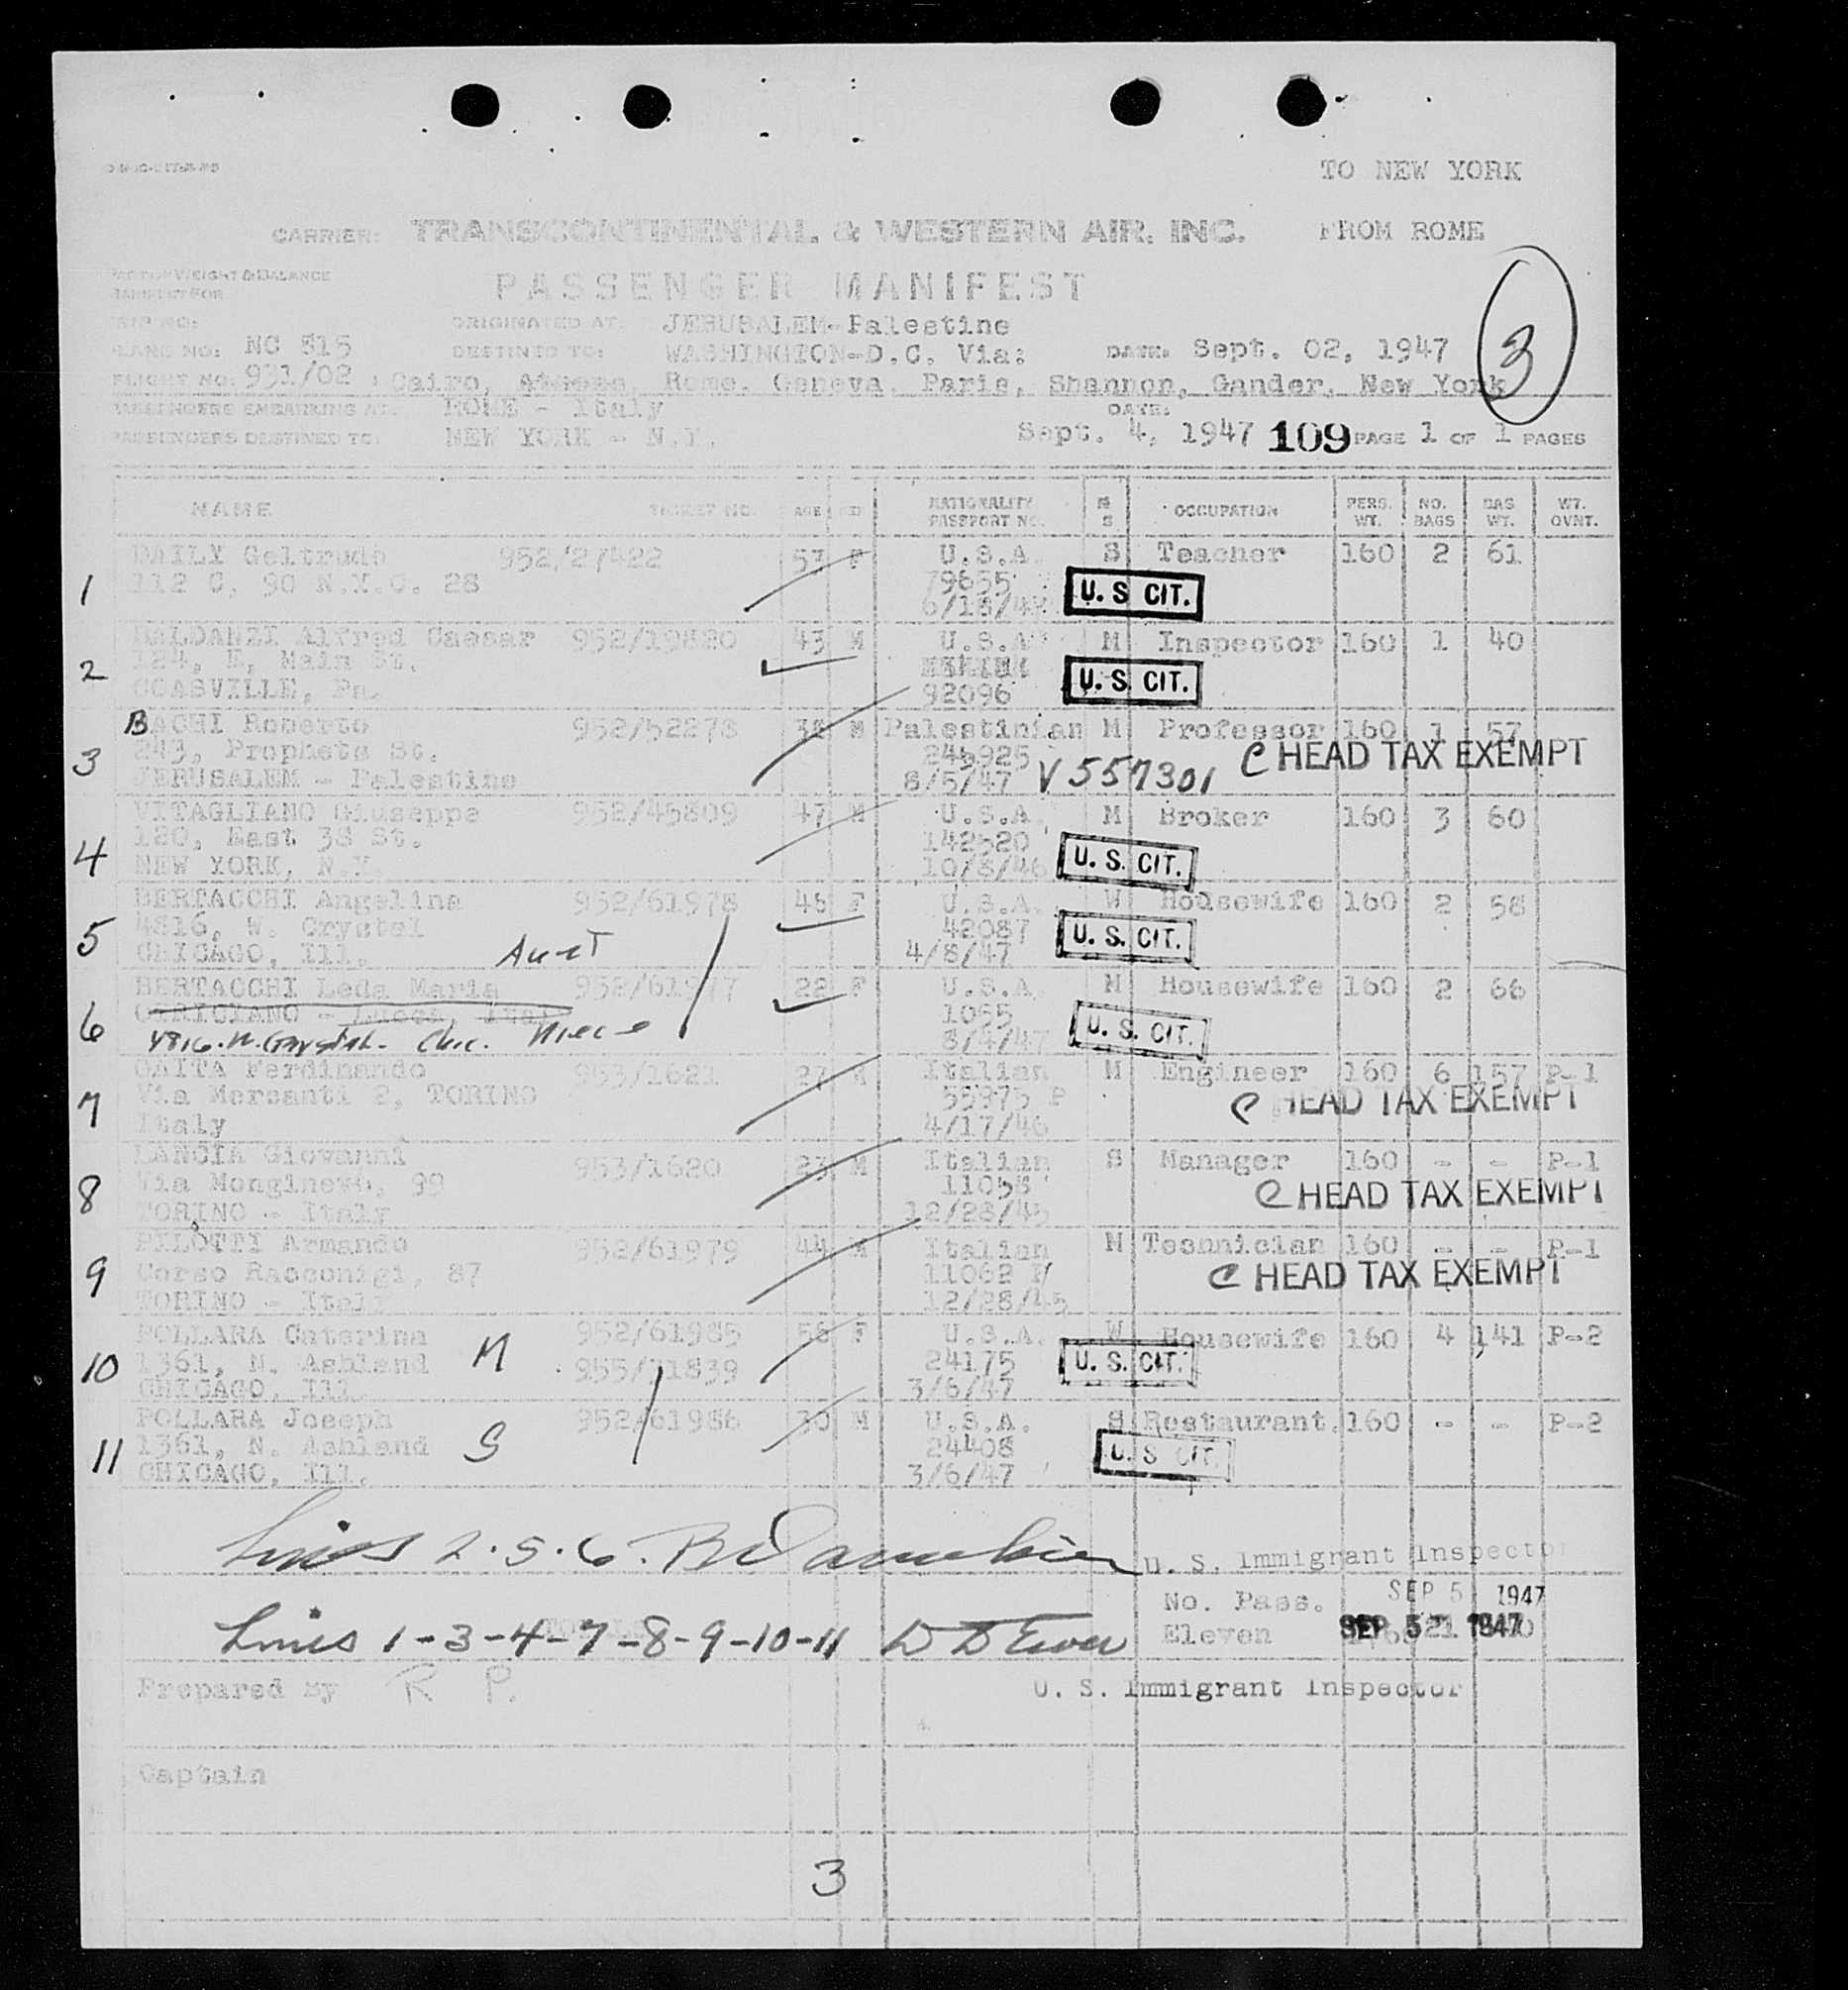 TO NEW YORK
CARRIER: TRANSCONTINENTAL & WESTERN AIR. INC. FROM ROME
WEIGHT & BALANCE
MANIFEST FOR
PASSENGER MANIFEST
3
TRIP NO: ORIGINATED AT: JERUSALEM-Palestine
PLANE NO: NC 515 DESTINED TO: WASHINGTON-D.C. Via: DATE: Sept. 02, 1947
FLIGHT NO: 931/02 Cairo, Athens, Rome, Geneva, Paris, Shannon, Gander, New York
PASSENGERS EMBARKING AT: ROME - Italy DATE:
PASSENGERS DESTINED TO: NEW YORK - N.Y. Sept. 4, 1947 109 PAGE 1 OF 1 PAGES
NAME TICKET NO. AGE SEX NATIONALITY PASSPORT NO. M S OCCUPATION PERS. WT. NO. BAGS BAG WT. WT. QVNT.
DAILY Geltrude 952/27422 53 F U.S.A. S Teacher 160 2 61
1 112 C, 90 N.Y.C. 28 79655 U. S CIT.
6/18/47
BALDANZI Alfred Caesar 952/19820 43 M U.S.A M Inspector 160 1 40
2 124, E, Main St. U. S. CIT.
COASVILLE, Pa. 92096
BACHI Roberto 952/52278 38 M Palestinian M Professor 160 1 57
3 243, Prophets St. 245925 C HEAD TAX EXEMPT
JERUSALEM - Palestine 8/5/47 V 557301
VITAGLIANO Giuseppe 952/45809 47 M U.S.A. M Broker 160 3 60
4 120, East 38 St. 142520 U. S. CIT.
NEW YORK, N.Y. 10/8/46
BERTACCHI Angelina 952/61978 48 F U.S.A. W Housewife 160 2 58
5 4816, W. Crystal 42087 U. S. CIT.
CHICAGO, Ill. Aunt 4/8/47
BERTACCHI Leda Maria 952/61977 22 F U.S.A M Housewife 160 2 66
6 - Lucca, 1055 U. S. CIT.
4816. W. Crystal - Chic. Niece 8/4/47
GAITA Ferdinando 953/1621 27 M Italian M Engineer 160 6 157 P-1
7 Via Mercanti 2, TORINO 55975 P C HEAD TAX EXEMPT
Italy 4/17/46
LANCIA Giovanni 953/1620 23 M Italian S Manager 160 - - P-1
8 Via Monginevo, 99 11058 C HEAD TAX EXEMPT
TORINO - Italy 12/28/45
PILOTTI Armando 952/61979 44 M Italian M Technician 160 - - P-1
9 Corso Racconigi, 87 11062 P C HEAD TAX EXEMPT
TORINO - Italy 12/28/45
POLLARA Caterina M 952/61985 58 F U.S.A. W Housewife 160 4 141 P-2
10 1361, N. Ashland 955/71839 24175 U. S. CIT.
CHICAGO, Ill. 3/6/47
POLLARA Joseph S 952/61986 30 M U.S.A. S Restaurant. 160 - - P-2
11 1361, N. Ashland 24408 U. S CIT.
CHICAGO, Ill. 3/6/47
Lines 2.5.6. U. S. Immigrant Inspector
No. Pass. SEP 5 1947
Lines 1-3-4-7-8-9-10-11 Eleven SEP 5 1947
Prepared By R P. U. S. Immigrant Inspector
Captain
3